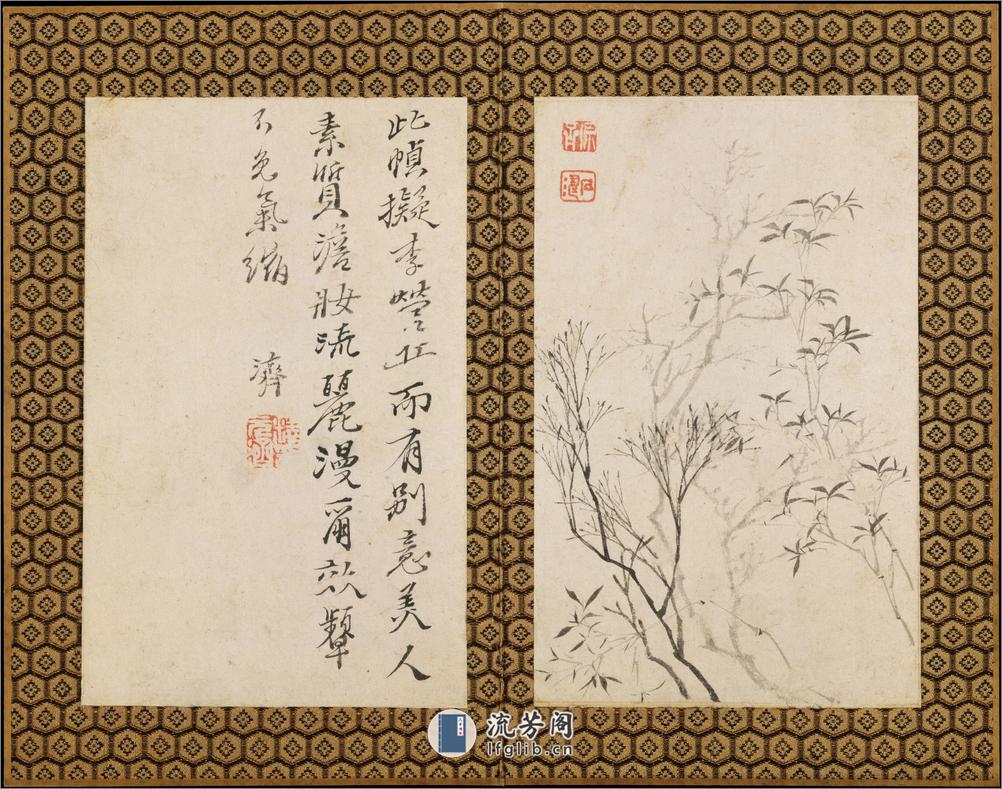 此幀擬李營丘而有別意美人
素質澹妝流麗漫爾效顰
不免氣縮
濟
流芳阁
lfglib.cn